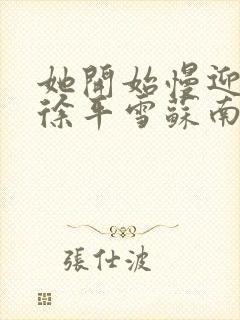 她開始慢迎
徐平雪蘇南
張仕波